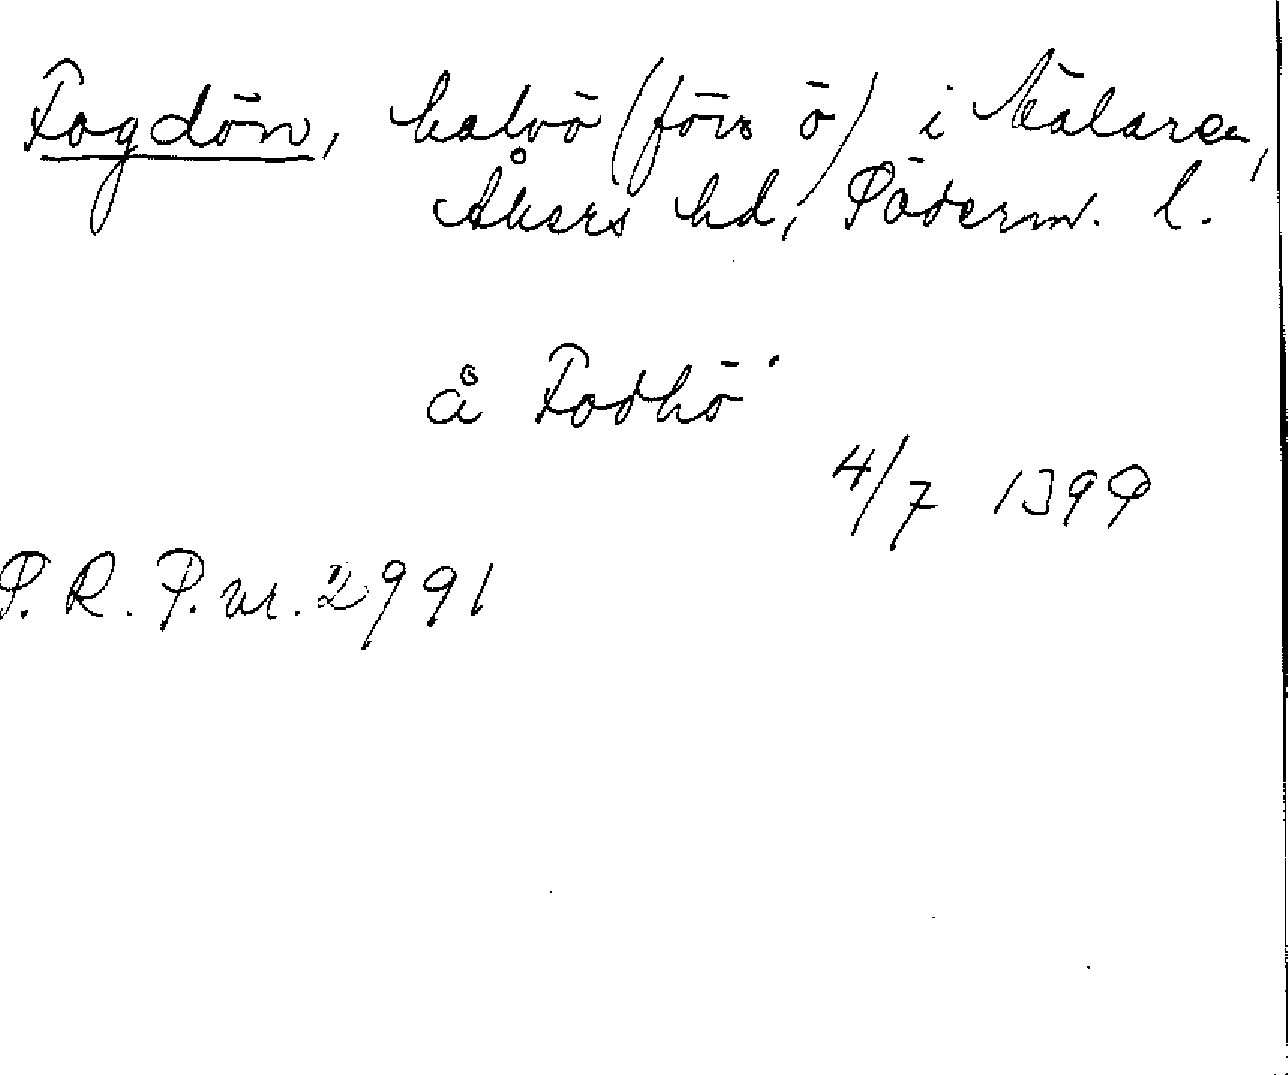 Fogdön, halvö (förr ö) i Mälaren,
Åkers hd, Söderm. l.
å Fodhö
4/7 1399
S. R. P. nr. 2991